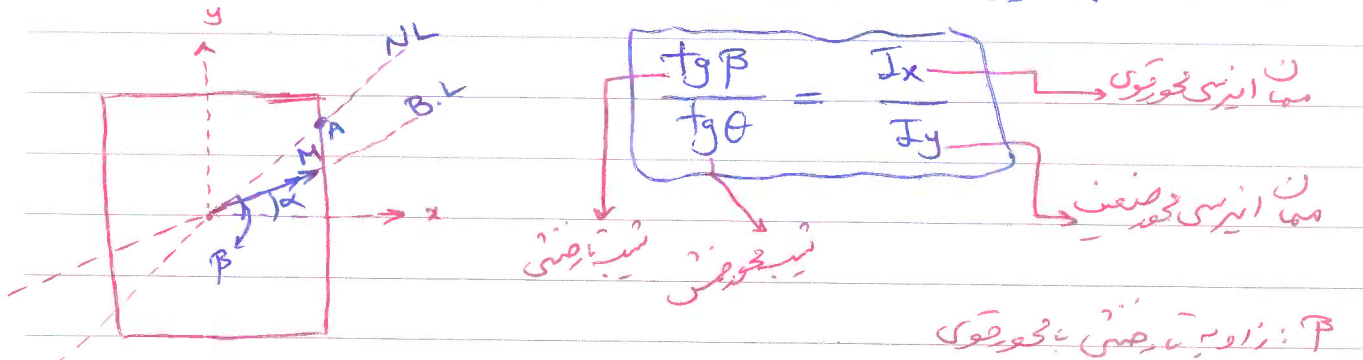 y
NL
B.L
A
M
α
x
β
tgβ / tgθ = Ix / Iy
ممان اینرسی محور قوی
ممان اینرسی محور ضعیف
شیب تار خنثی
شیب محور خمش
β: زاویه تار خنثی با محور قوی